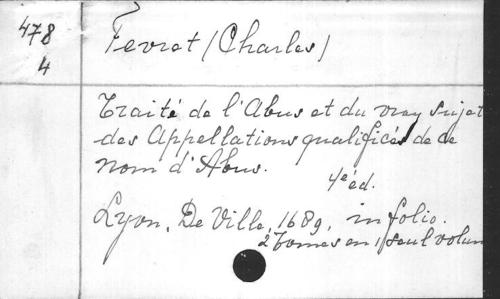 478
4
Fevret (Charles)
Traité de l'Abus et du vray sujet
des Appellations qualifiées de ce
nom d'Abus.
4e éd.
Lyon, De Ville, 1689, in folio.
2 tomes en 1 seul volum